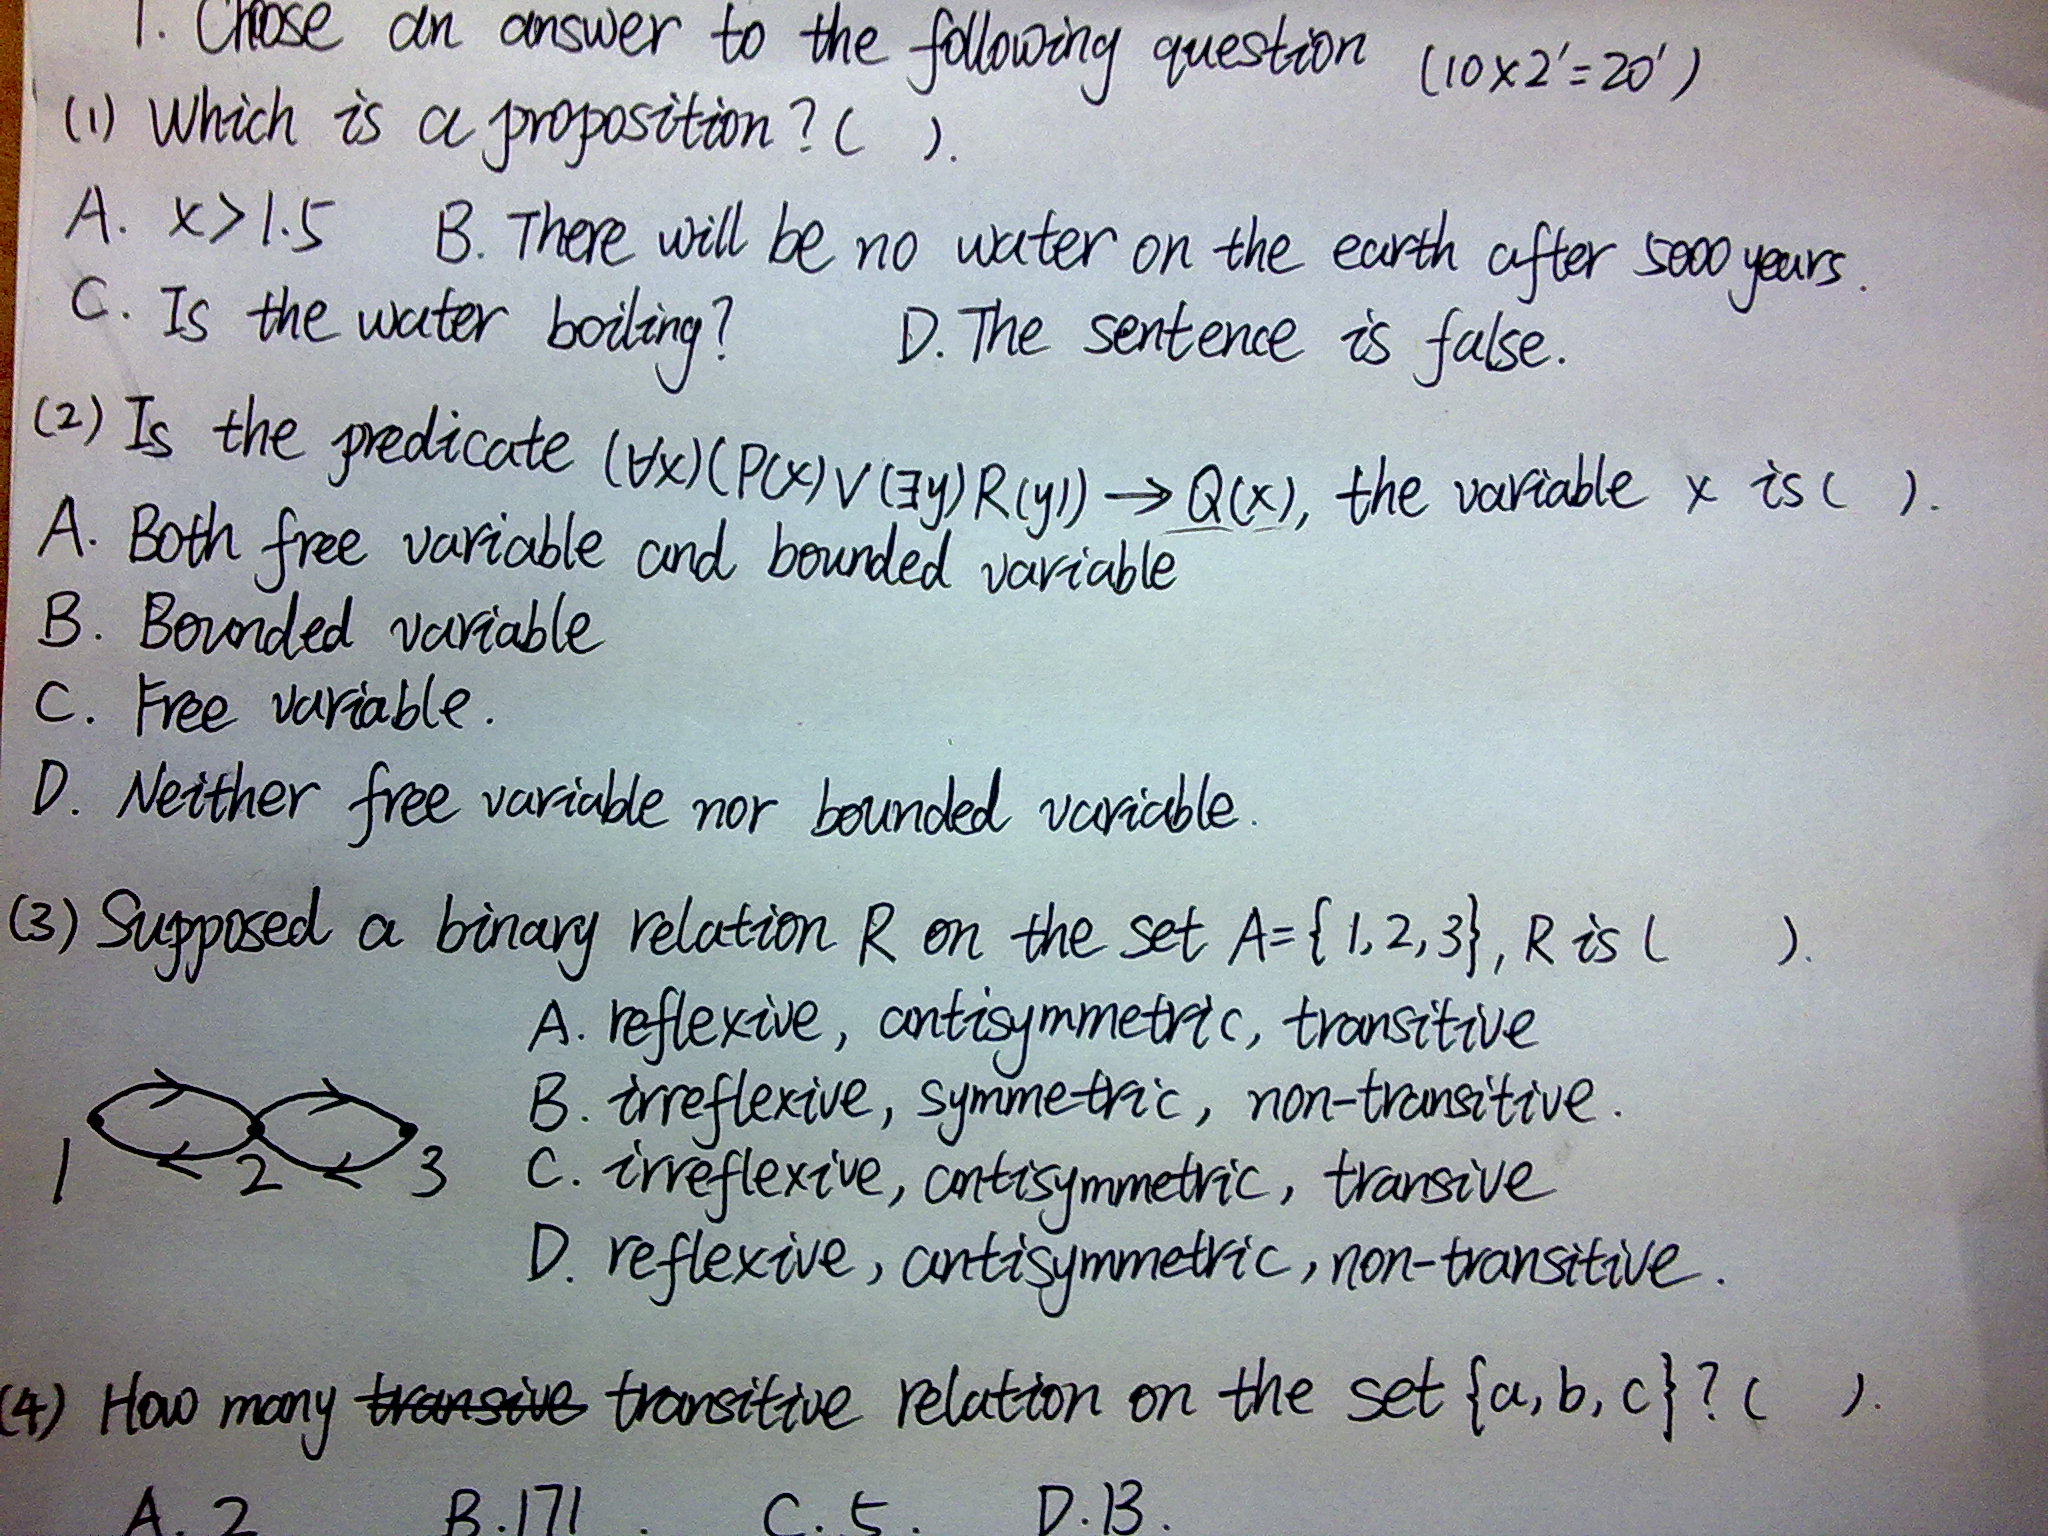 1. Choose an answer to the following question (10×2'=20')
(1) Which is a proposition? ( ).
A. x>1.5 B. There will be no water on the earth after 5000 years.
C. Is the water boiling? D. The sentence is false.
(2) Is the predicate (∀x)(P(x)∨(∃y)R(y))→Q(x), the variable x is ( ).
A. Both free variable and bounded variable
B. Bounded variable
C. Free variable.
D. Neither free variable nor bounded variable.
(3) Supposed a binary relation R on the set A={1,2,3}, R is ( ).
A. reflexive, antisymmetric, transitive
B. irreflexive, symmetric, non-transitive.
C. irreflexive, antisymmetric, transive
D. reflexive, antisymmetric, non-transitive.
1 2 3
(4) How many transive transitive relation on the set {a, b, c}? ( ).
A. 2 B. 171. C. 5. D. 13.